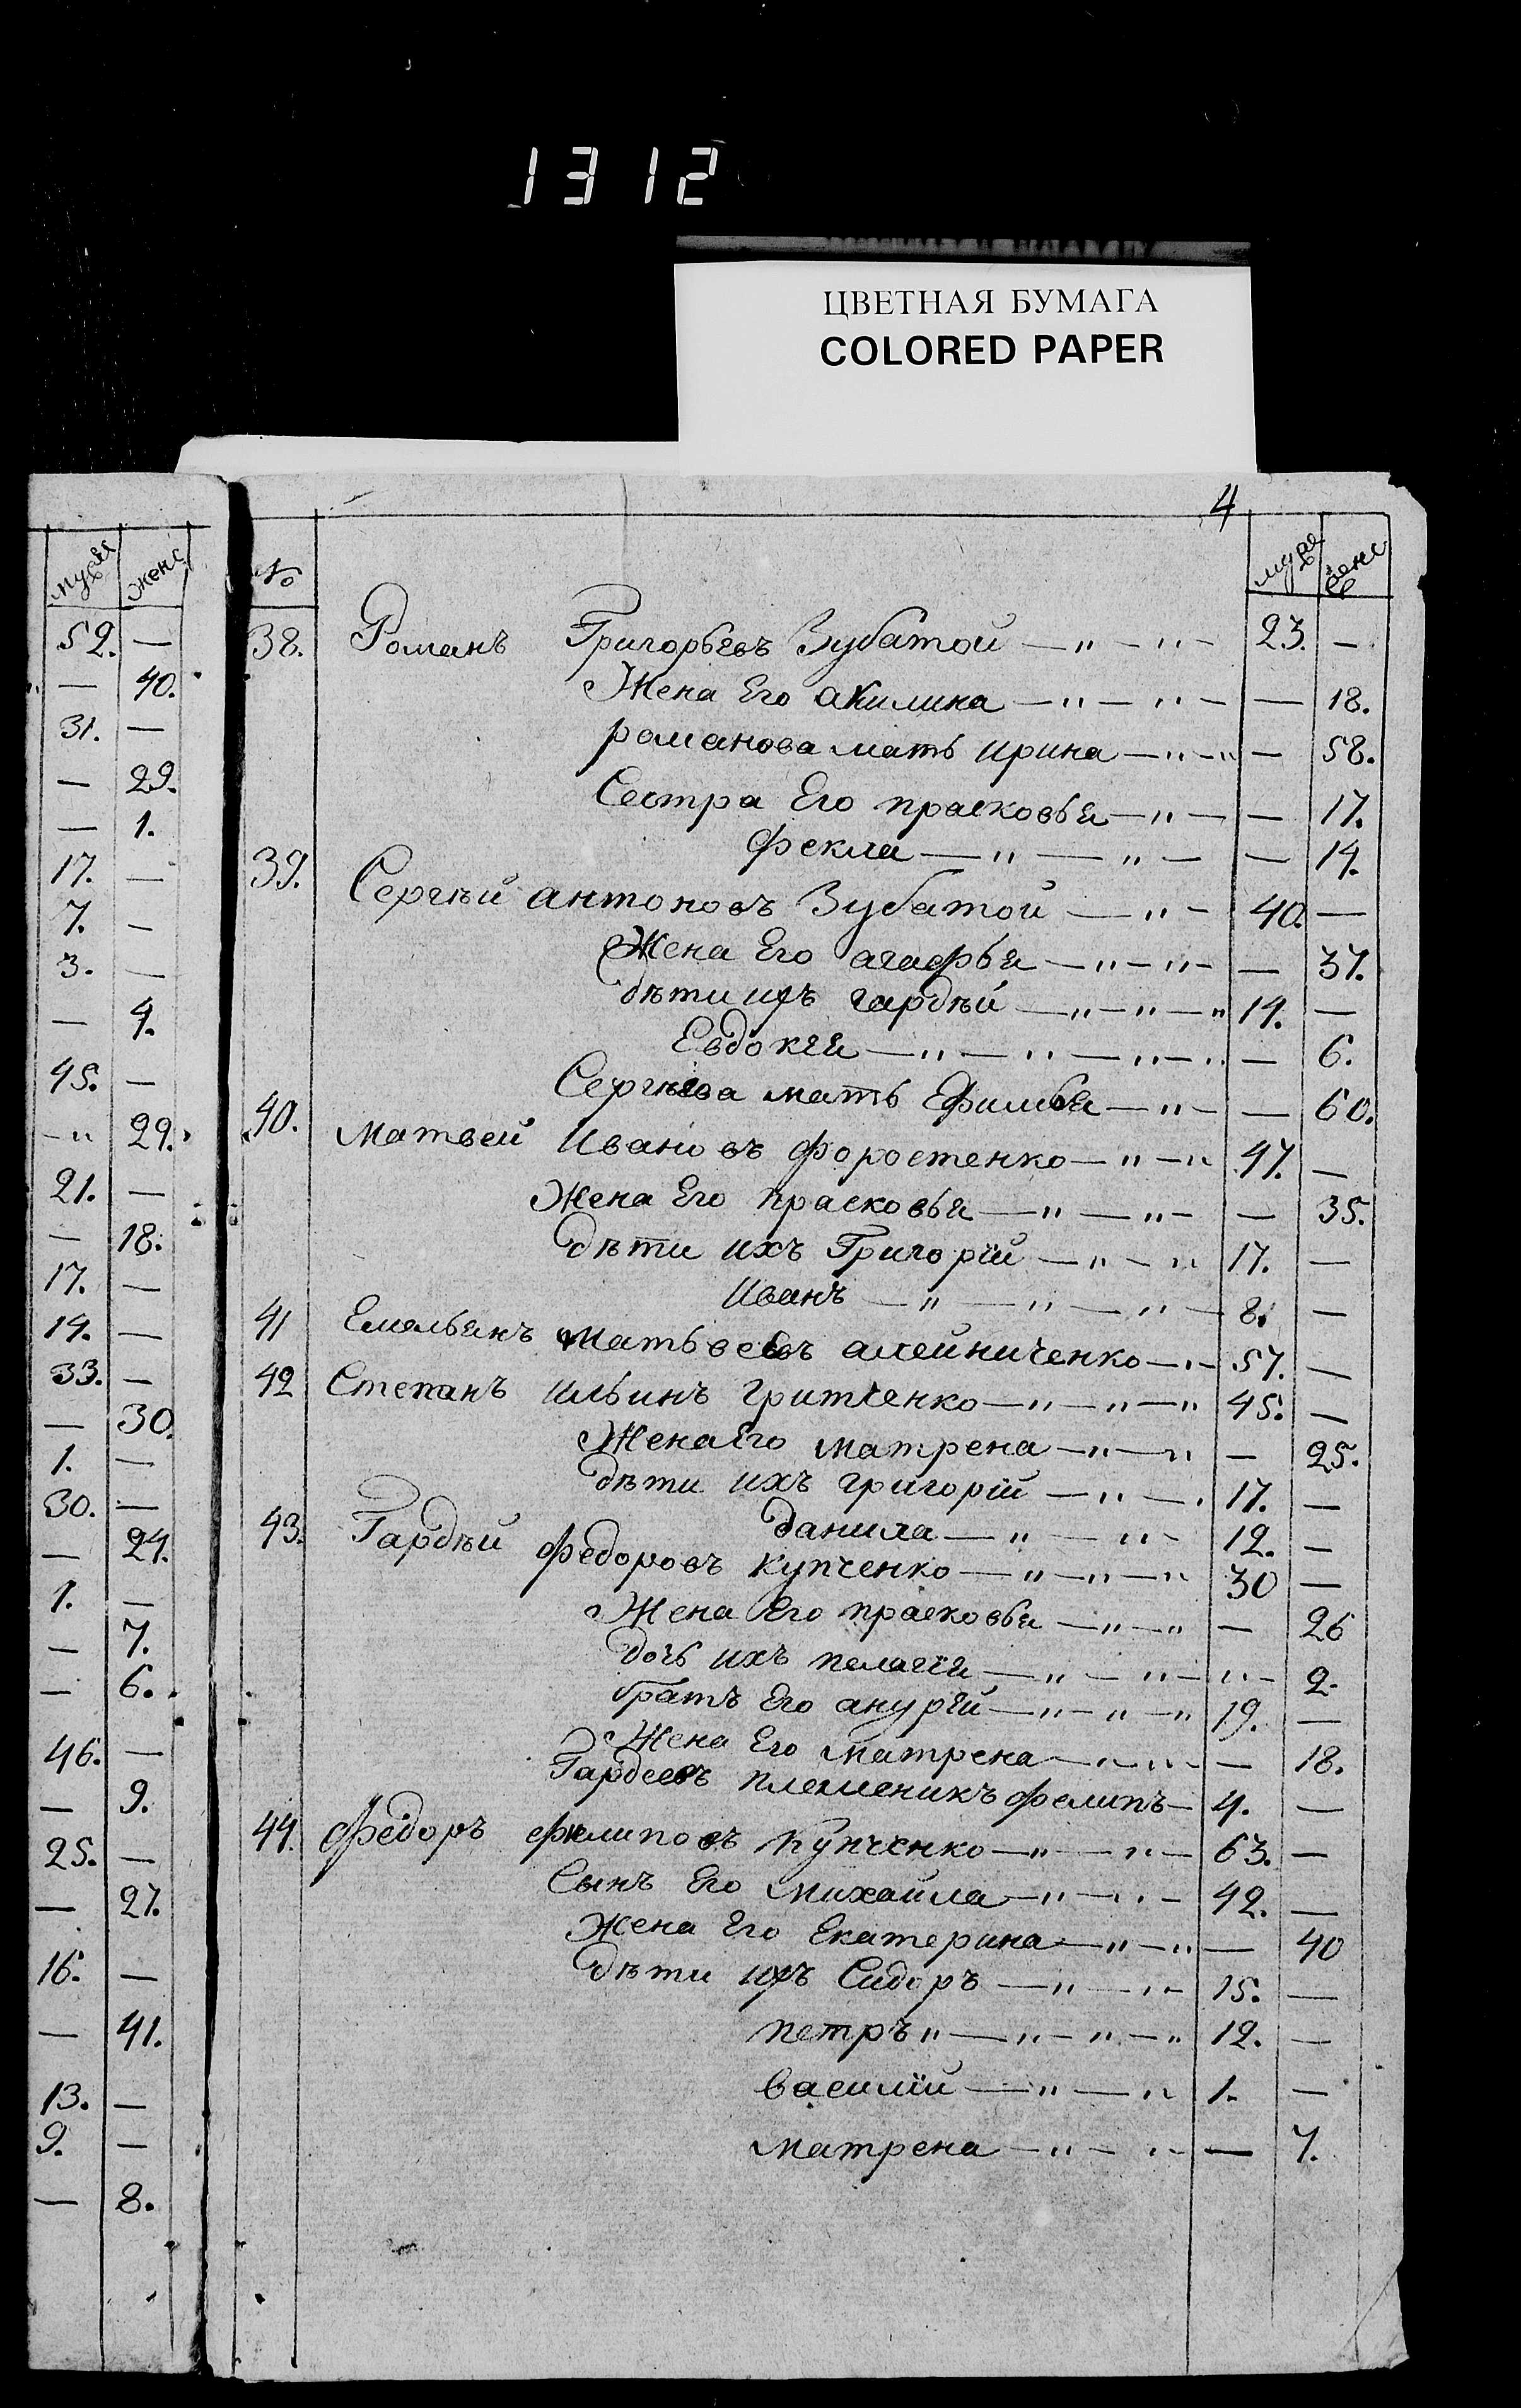 1312
ЦВЕТНАЯ БУМАГА
COLORED PAPER
4
муж женс
52. —
— 40.
31. —
— 29.
— 1.
17. —
7. —
3. —
— 4.
45. —
—" 29.
21. —
— 18.
17. —
14. —
33. —
— 30.
1. —
30. —
— 24.
1. —
— 7.
— 6.
46. —
— 9.
25. —
— 27.
16. —
— 41.
13. —
9. —
— 8.
№ муж женс
38. Романъ Григорьевъ Зубатой — " — " — 23. —
Жена Его акилина — " — " — — 18.
романова мать ирина — " — " — 58.
Сестра Его прасковья — " — — 17.
фекла — " — " — — 14.
39. Сергѣй антоновъ Зубатой — " — 40. —
Жена Его агафья — " — " — — 37.
дѣти ихъ гардѣй — " — " — " 14. —
Евдокия — " — " — " — " — 6.
Сергѣева мать Ефимья — " — — 60.
40. Матвей Ивановъ форостенко — " — " 47. —
Жена Его прасковья — " — " — — 35.
дѣти ихъ Григорій — " — " 17. —
Иванъ — " — " — " — 8. —
41 Емельянъ Матьвеевъ алейниченко — " — 57. —
42 Степанъ ильинъ гритченко — " — " — " 45. —
Жена Его матрена — " — " — 25.
дѣти ихъ григорій — " — " 17. —
данила — " — " — 12. —
43. Гардѣй федоровъ купченко — " — " — " 30 —
Жена Его прасковья — " — " — 26
дочь ихъ пелагія — " — " — " — 2.
братъ Его анурій — " — " — " 19. —
Жена Его матрена — " — " — — 18.
Гардеевъ племеникъ фелипъ — 4. —
44. федоръ филиповъ купченко — " — " — 63. —
Сынъ Его михайла — " — " — 42. —
Жена Его Екатерина — " — " — 40
дѣти ихъ Сидоръ — " — " — 15. —
петръ " — " — " — " 12. —
василій — " — " 1. —
матрена — " — " — — 7.